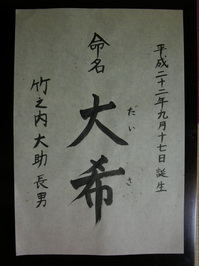 平成二十二年九月十七日 誕生
命名
大希
だいき
竹之内 大助 長男